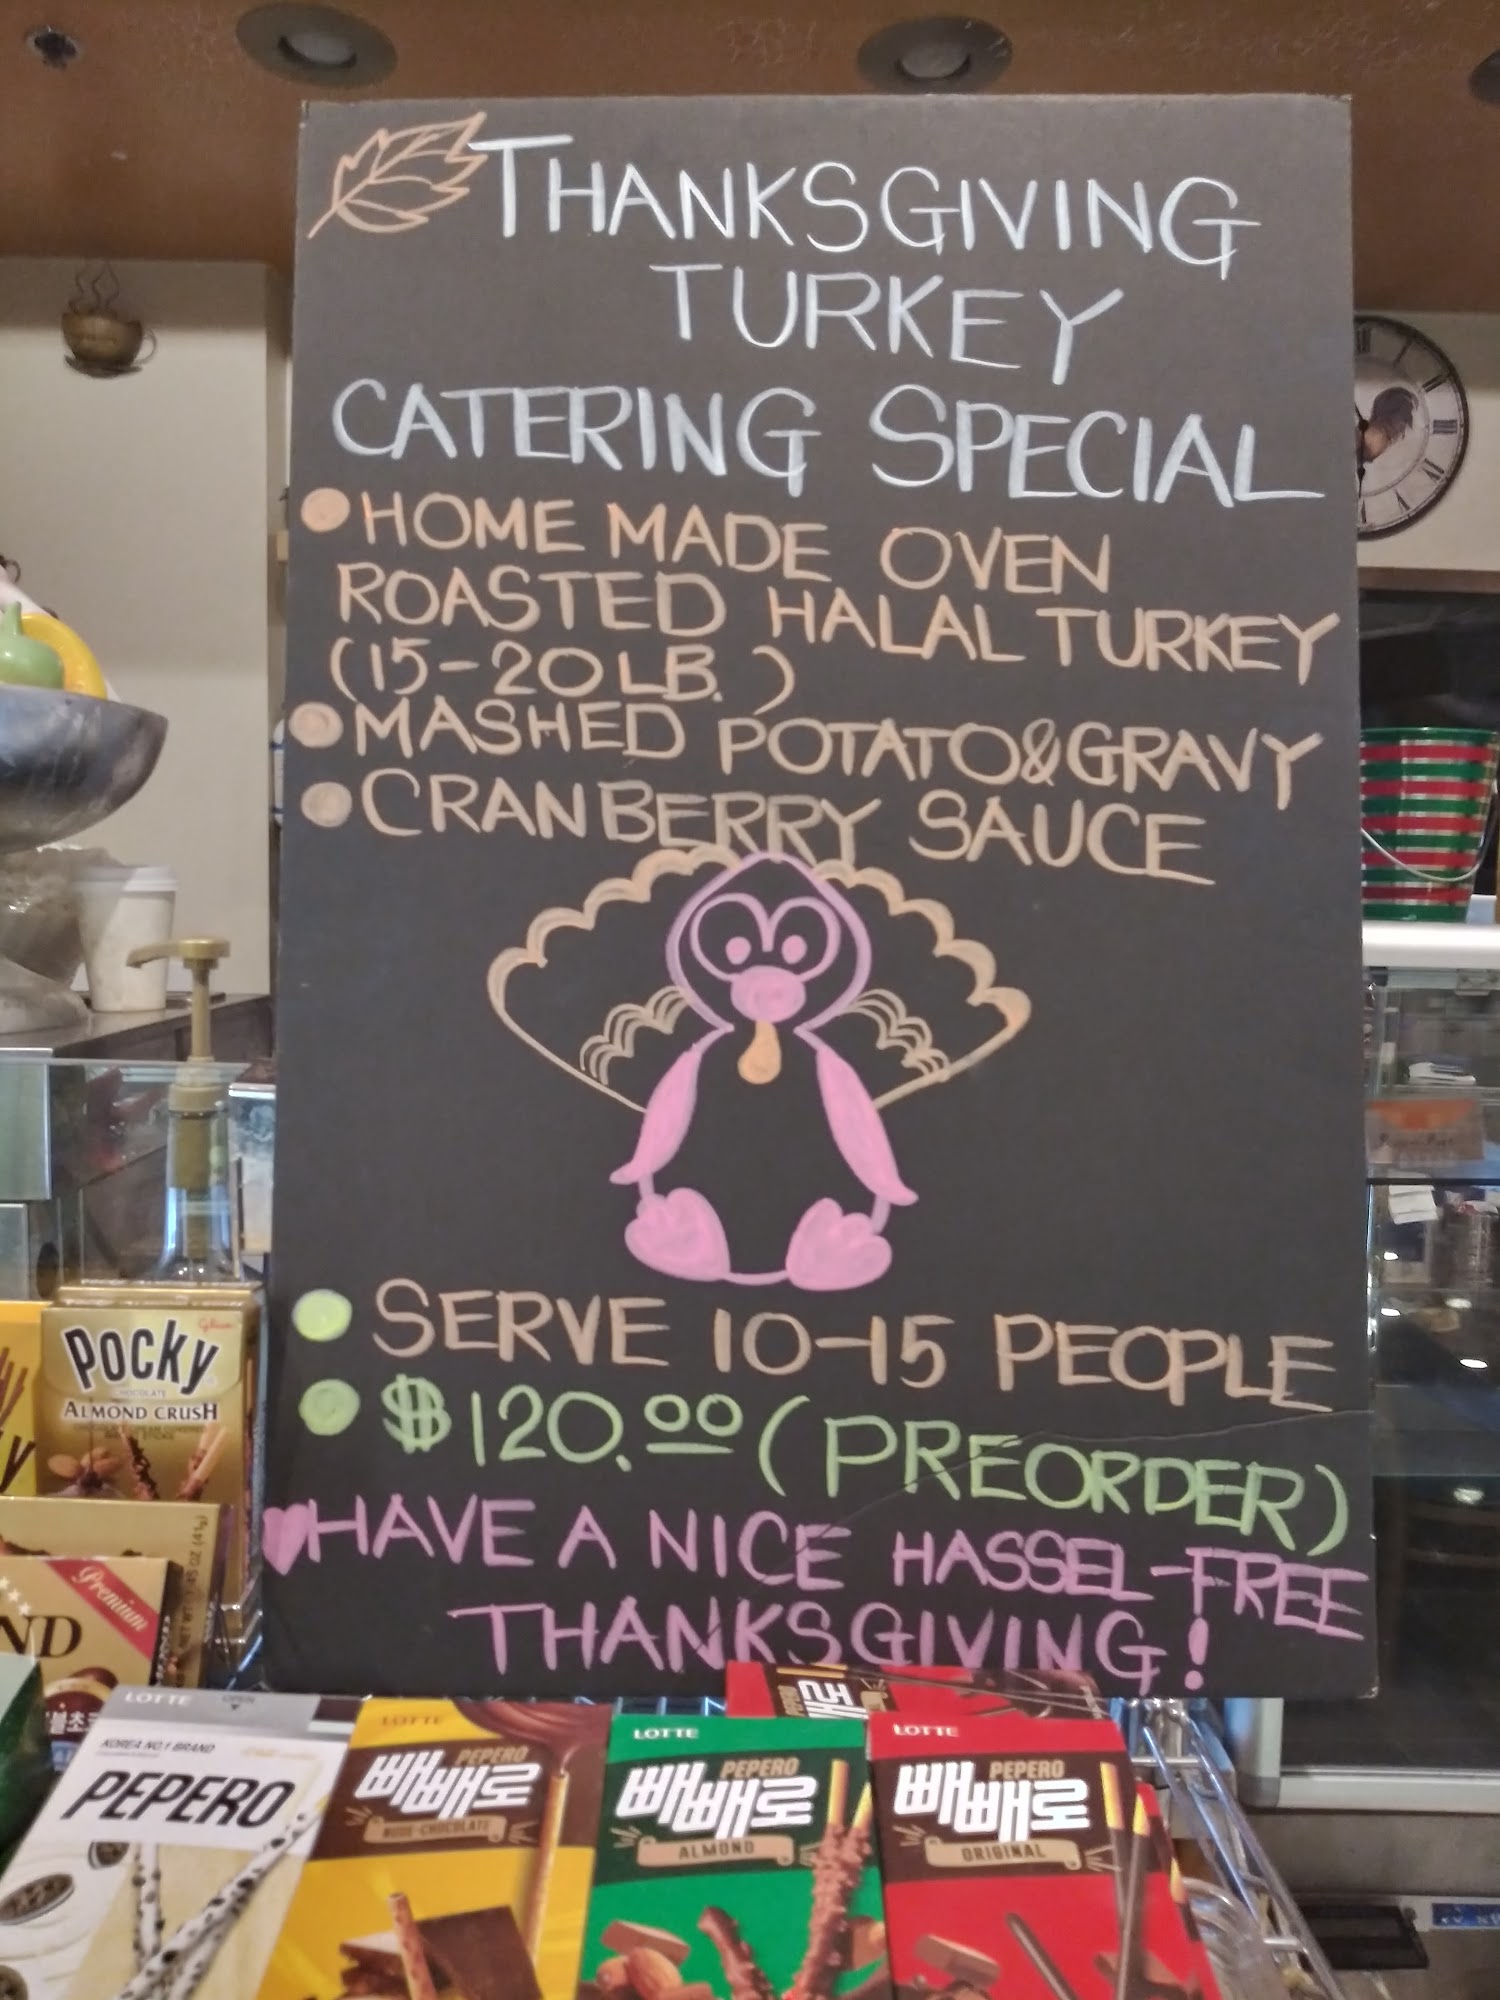 THANKSGIVING
TURKEY
CATERING SPECIAL
HOME MADE OVEN
ROASTED HALAL TURKEY
(15-20 LB.)
MASHED POTATO & GRAVY
CRANBERRY SAUCE
SERVE 10-15 PEOPLE
$120.00 (PREORDER)
HAVE A NICE HASSEL-FREE
THANKSGIVING!
Glico
POCKY
CHOCOLATE
ALMOND CRUSH
Premium
ND
NET WT 1.45 OZ (41g)
LOTTE
OPEN
KOREA NO.1 BRAND
PEPERO
LOTTE
PEPERO
빼빼로
NUDE-CHOCOLATE
LOTTE
PEPERO
빼빼로
ALMOND
LOTTE
PEPERO
빼빼로
ORIGINAL